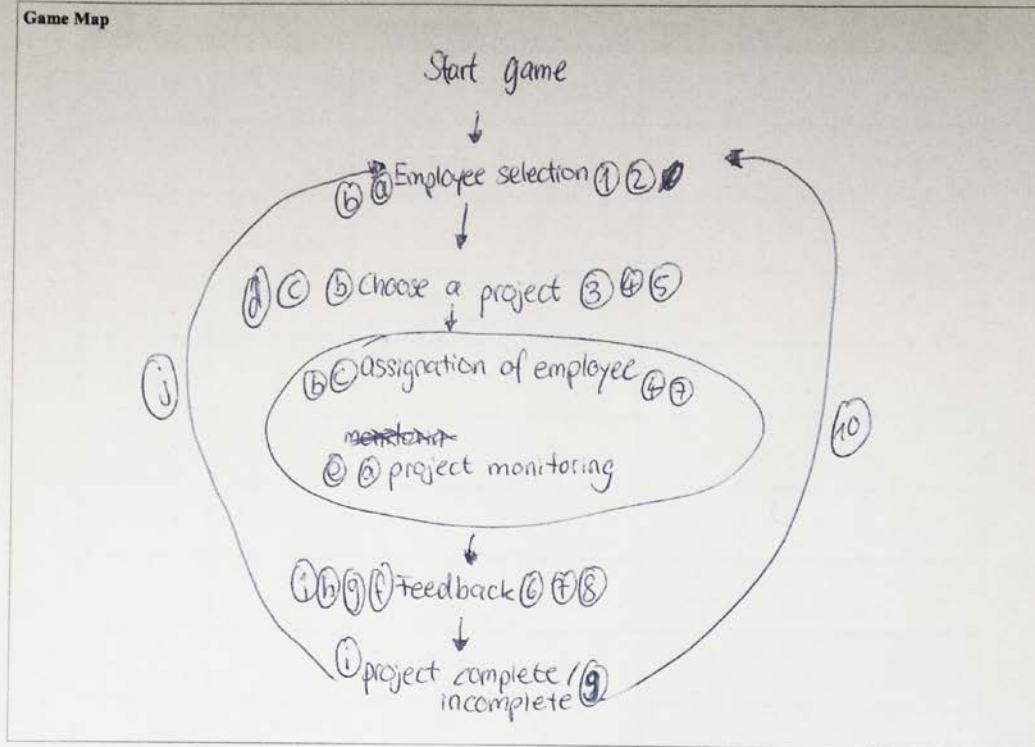 Game Map
Start game
ⓑ ⓐ Employee selection ① ②
ⓓ ⓒ ⓑ Choose a project ③ ④ ⑤
ⓑ ⓒ assignation of employee ④ ⑦
ⓔ ⓐ project monitoring
ⓙ
⑩
ⓗ ⓖ ⓕ Feedback ⑥ ⑦ ⑧
ⓘ project complete /
incomplete ⑨